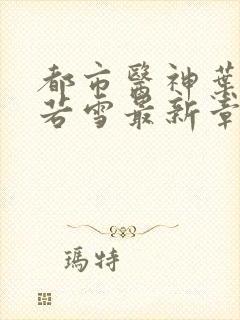 都市醫神葉
若雪最新章
瑪特